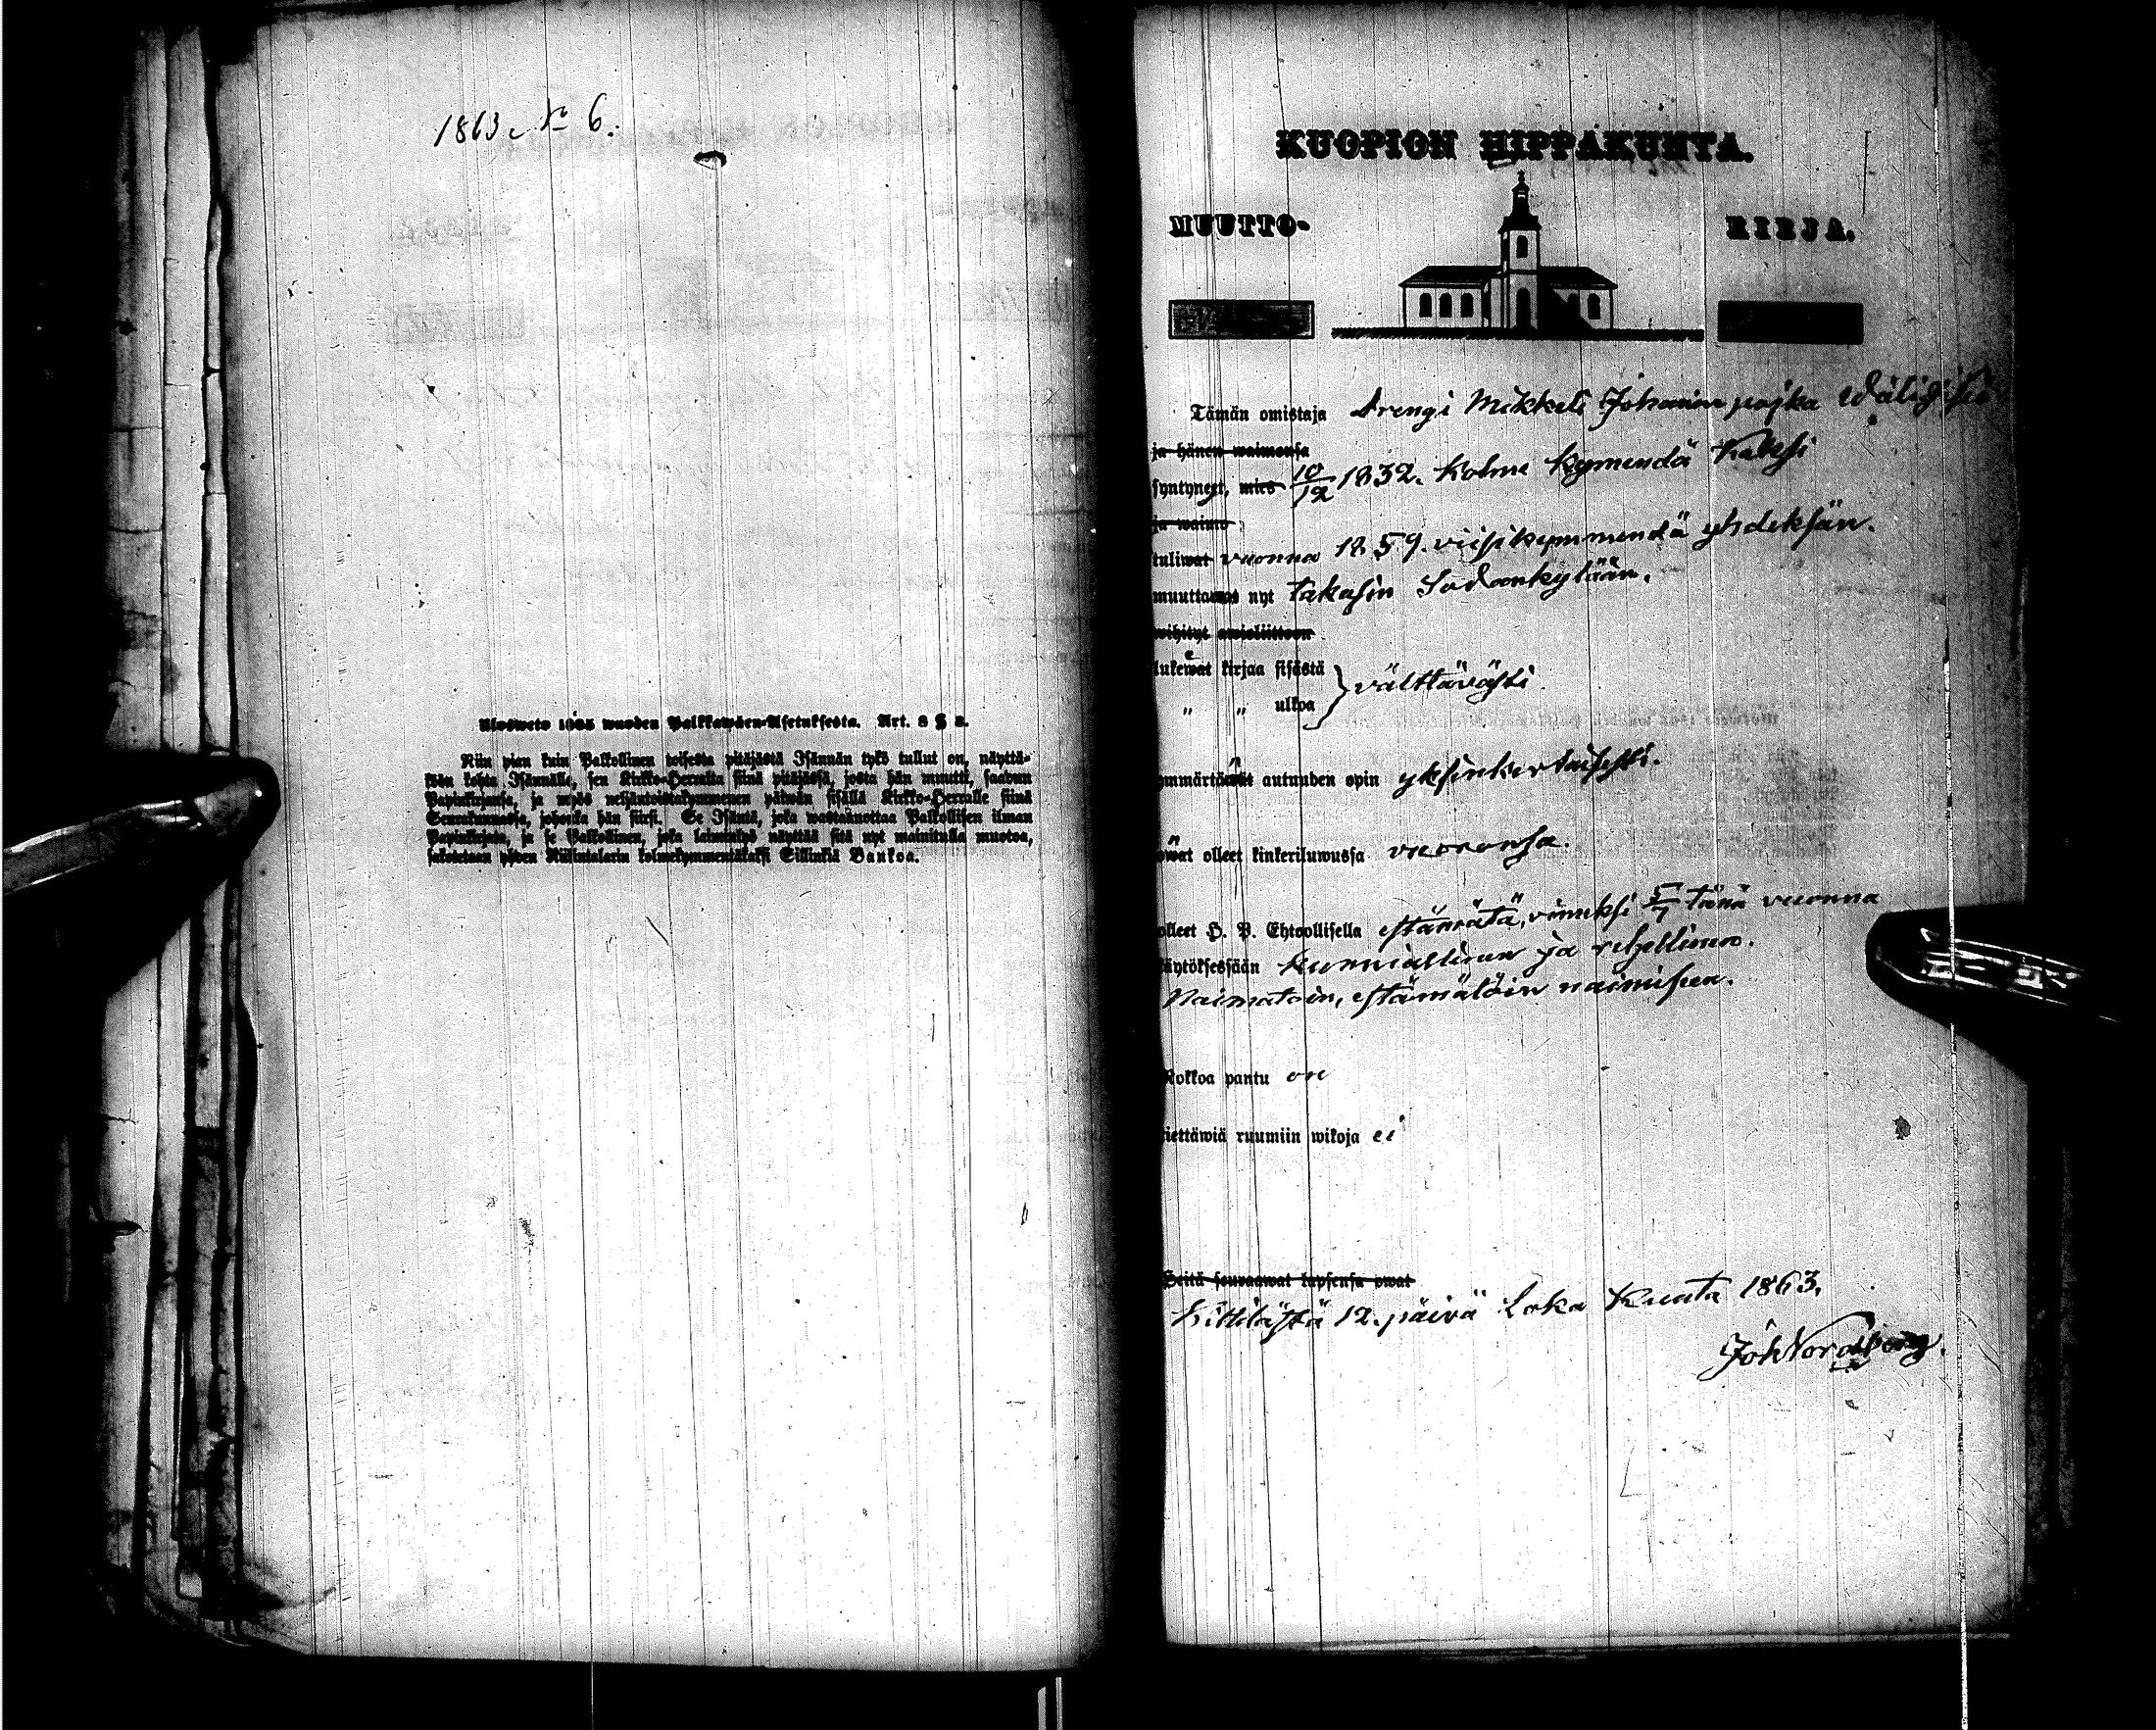 1863. No 6.
Ulosweto 1805 wuoden Palkkawäen-Asetuksesta. Art. 8 § 2.
Niin pian kuin Palkollinen toisesta pitäjästä Isännän tykö tullut on, näyttä-
kön kohta Isännälle, sen Kirkko-Herralta siinä pitäjässä, josta hän muutti, saadun
Papinkirjansa, ja myös neljäntoistakymmenen päiwän sisällä Kirkko-Herralle siinä
Seurakunnassa, johonka hän siirsi. Se Isäntä, joka wastaanottaa Palkollisen ilman
Papinkirjata, ja se Palkollinen, joka laiminlyö näyttää sitä nyt mainitulla muotoa,
sakotetaan yhden Riikintalarin kolmekymmentäkaksi Sillinkiä Bankoa.
KUOPION HIPPAKUNTA.
MUUTTO- KIRJA.
Tämän omistaja Drengi Mikkeli Johanin pojka
ja hänen waimonsa
syntyneet, mies 10/12 1832. Kolme kymendä Kaksi
ja waimo
tuliwat vuonna 1859. viisikymmendä yhdeksän.
muuttawat nyt takasin Sodankylään.
wihityt awioliittoon
lukewat kirjaa sisästä } välttävästi
„ „ ulkoa
ymmärtäwät autuuden opin yksinkertaisesti.
owat olleet kinkeriluwussa vuoronsa.
olleet H. P. Ehtoollisella estämätä, viimeksi 5/7 tänä vuonna
käytöksessään kunniallinen ja rehellinen.
Naimatoin, estämätöin naimiseen.
Rokkoa pantu on
tiettäwiä ruumiin wikoja ei
Heitä seuraawat lapsensa owat
Kittilästä 12. päivä Loka Kuuta 1863.
Joh Nordberg.